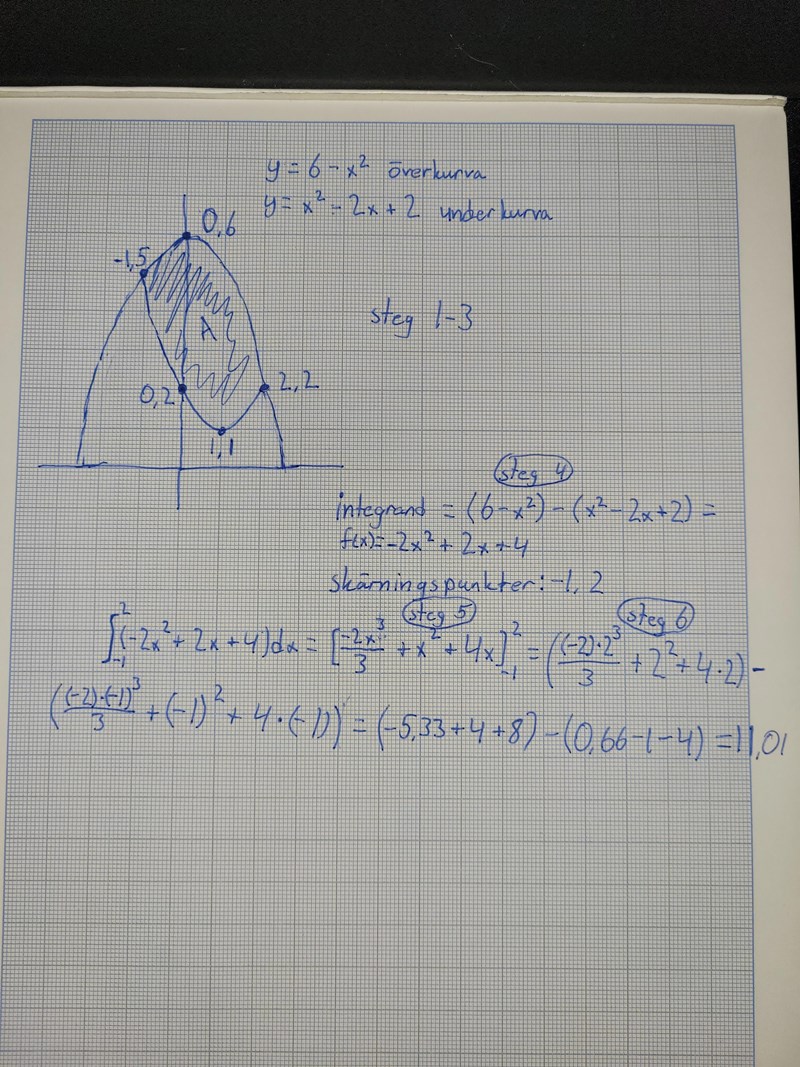 y = 6 - x² överkurva
y = x² - 2x + 2 underkurva
0,6
-1,5
steg 1-3
A
0,2
2,2
1,1
steg 4
integrand = (6-x²) - (x² - 2x+2) =
f(x)= -2x² + 2x + 4
skärningspunkter: -1, 2
steg 5
steg 6
∫₋₁² (-2x² + 2x + 4)dx = [-2x³/3 + x² + 4x]₋₁² = ((-2)·2³/3 + 2² + 4·2) -
((-2)·(-1)³/3 + (-1)² + 4·(-1)) = (-5,33+4+8) - (0,66-1-4) = 11,01